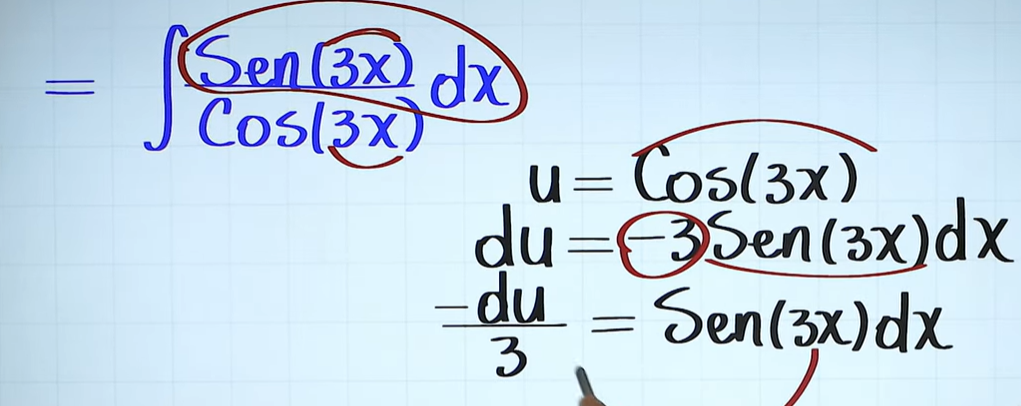 = ∫ Sen(3x)/Cos(3x) dx
u = Cos(3x)
du = -3Sen(3x)dx
-du/3 = Sen(3x)dx